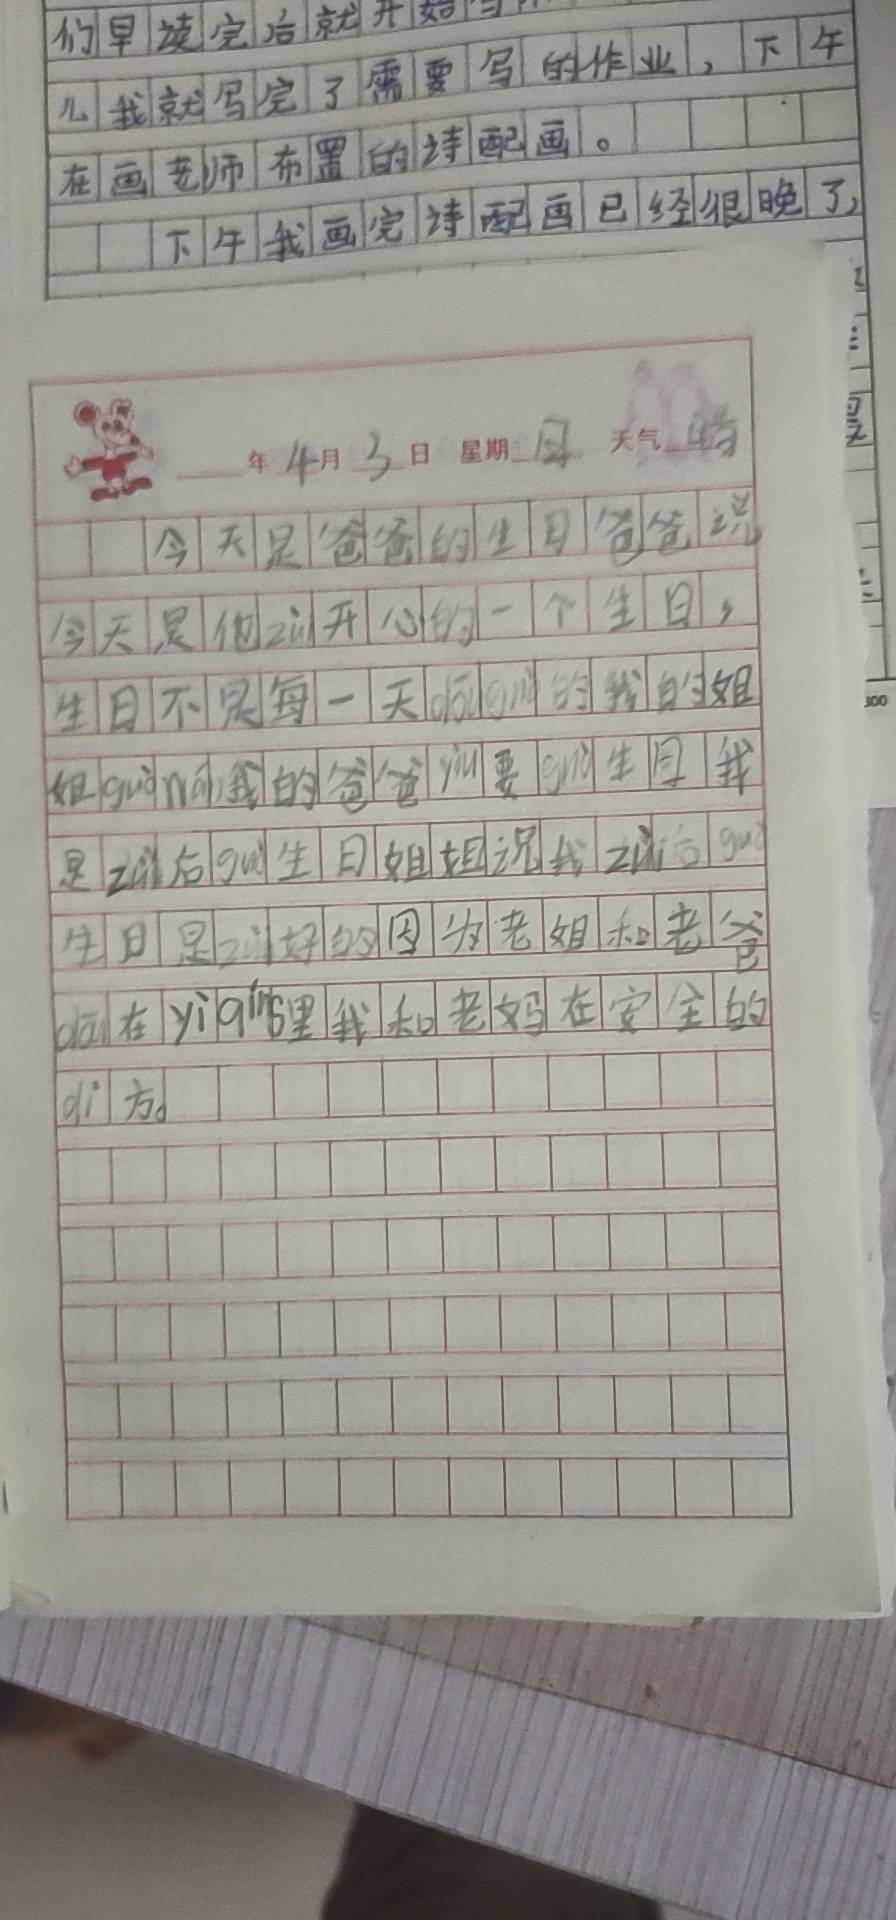 们早读完后就开始写
儿我就写完了需要写的作业，下午
在画老师布置的诗配画。
下午我画完诗配画已经很晚了，
年4月3日 星期日 天气 晴
今天是爸爸的生日爸爸说
今天是他zuì开心的一个生日，
生日不是每一天dōu 的我的姐
姐guò wán我的爸爸yòu要guò生日我
是zuì后guò生日姐姐说我zuì后guò
生日是zuì好的因为老姐和老爸
dōu在yì qíng里我和老妈在安全的
dì方。
300